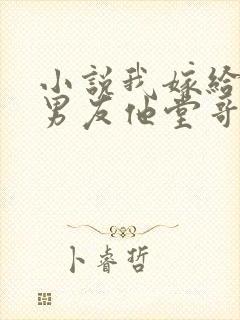 小說我嫁給
男友他堂哥
卜睿哲